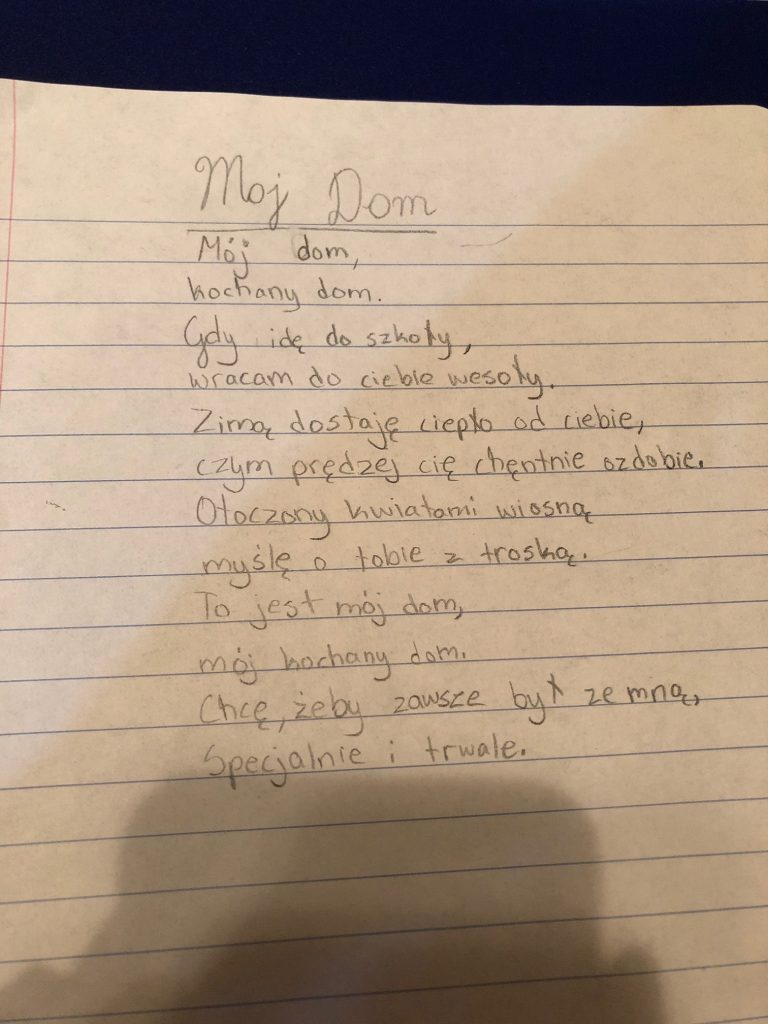 Moj Dom
Mój dom,
kochany dom.
Gdy idę do szkoły,
wracam do ciebie wesoły.
Zimą dostaję ciepło od ciebie,
czym prędzej cię chęntnie ozdobie.
Otoczony kwiatami wiosną
myślę o tobie z troską.
To jest mój dom,
mój kochany dom.
Chcę, żeby zawsze był ze mną,
Specjalnie i trwale.